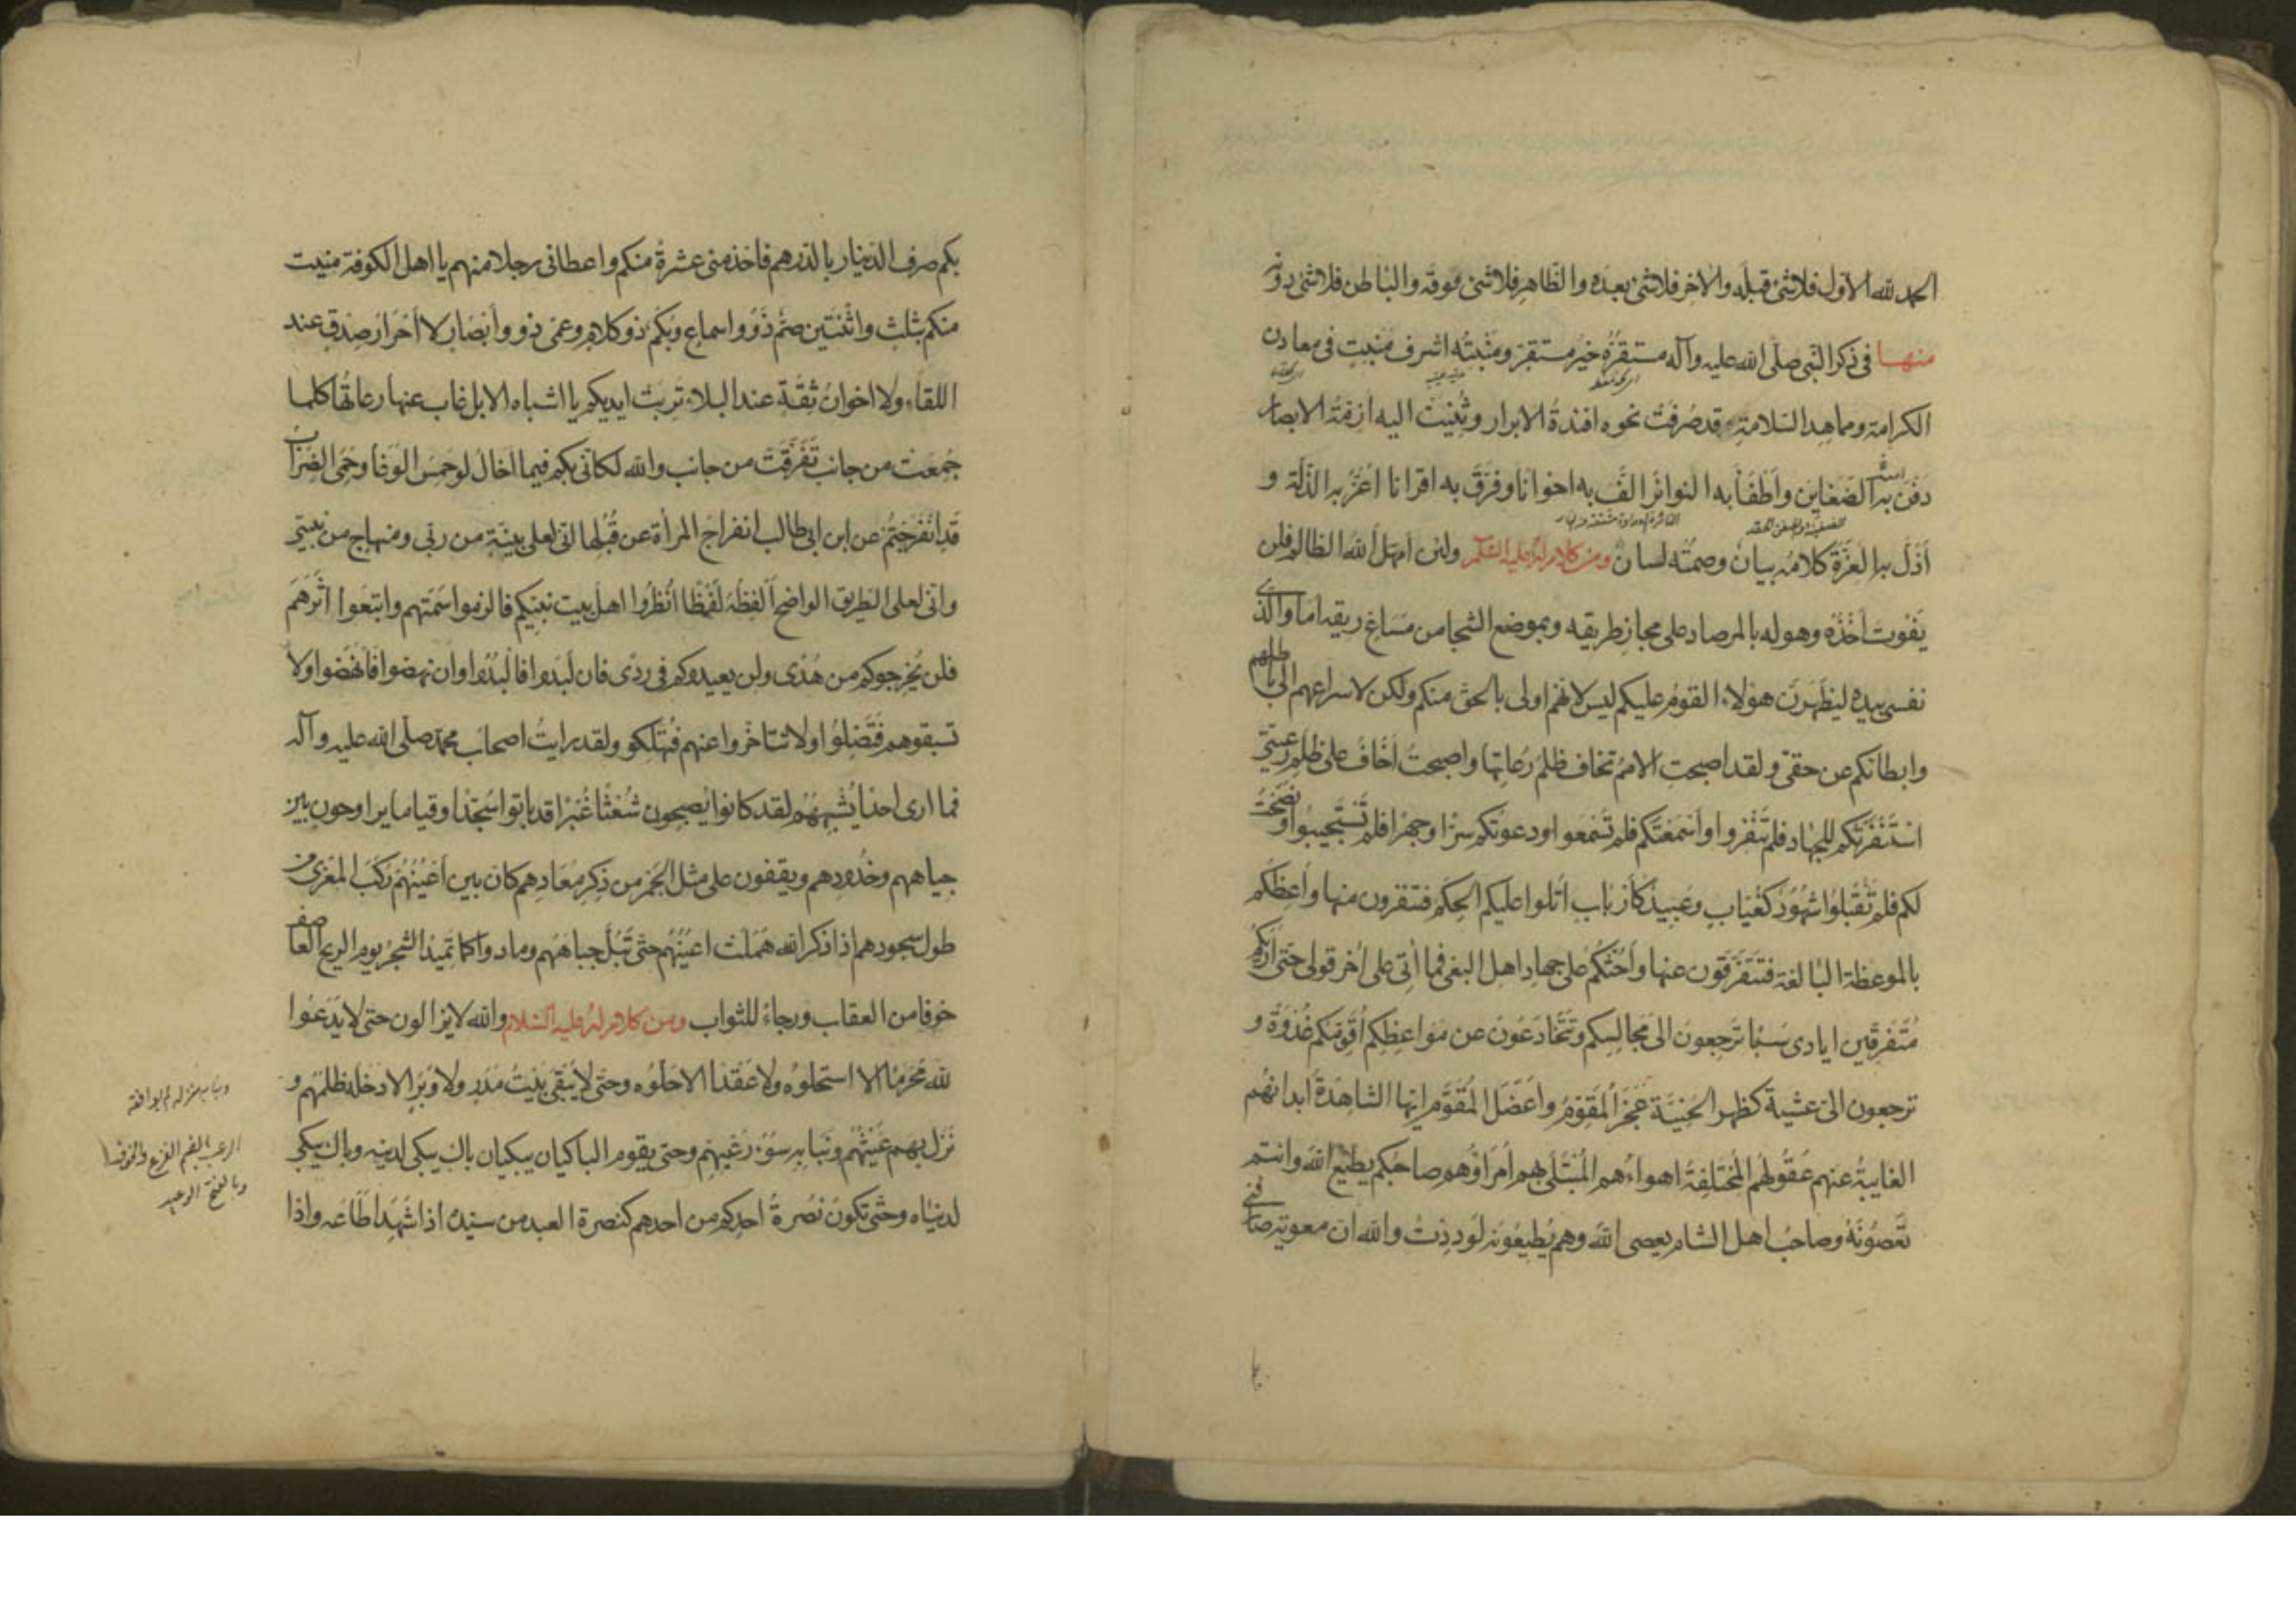 الحمد لله الاول فلا شئ قبله والاخر فلا شئ بعده والظاهر فلا شئ فوقه والباطن فلا شئ دونه
منها فى ذكر النبى صلى الله عليه وآله مستقره خير مستقر ومنبته اشرف منبت فى معادن
الكرامة ومماهد السلامة قد صرفت نحوه افئدة الابرار وثنيت اليه ازمة الابصار
دفن به الضغاين واطفأ به النوائر الف به اخوانا وفرق به اقرانا اعز به الذلة و
اذل به العزة كلامه بيان وصمته لسان ومن كلام له عليه السلام ولئن امهل الله الظالم فلن
يفوت اخذه وهو له بالمرصاد على مجاز طريقه وبموضع الشجا من مساغ ريقه اما والذى
نفسى بيده ليظهرن هؤلاء القوم عليكم ليس لانهم اولى بالحق منكم ولكن لاسراعهم الى باطلهم
وابطائكم عن حقى ولقد اصبحت الامم تخاف ظلم رعاتها واصبحت اخاف على ظلم رعيتى
استنفرتكم للجهاد فلم تنفروا واسمعتكم فلم تسمعوا ودعوتكم سرا وجهرا فلم تستجيبوا ونصحت
لكم فلم تقبلوا شهود كغياب وعبيد كأرباب اتلوا عليكم الحكم فتنفرون منها واعظكم
بالموعظة البالغة فتتفرقون عنها واحثكم على جهاد اهل البغى فما اتى على اخر قولى حتى اراكم
متفرقين ايادى سبا ترجعون الى مجالسكم وتتخادعون عن مواعظكم اقومكم غدوة و
ترجعون الى عشية كظهر الحنية عجز المقوم واعضل المقوم ايها الشاهدة ابدانهم
الغايبة عنهم عقولهم المختلفة اهواءهم المبتلى بهم امراؤهم صاحبكم يطيع الله وانتم
تعصونه وصاحب اهل الشام يعصى الله وهم يطيعونه لوددت والله ان معوية صارفنى
بكم صرف الدينار بالدرهم فاخذ منى عشرة منكم واعطانى رجلا منهم يا اهل الكوفة منيت
منكم بثلث واثنتين صم ذوو اسماع وبكم ذو كلام وعمى ذوو وأبصار لا احرار صدق عند
اللقاء ولا اخوان ثقة عند البلاء تربت ايديكم يا اشباه الابل غاب عنها رعاتها كلما
جمعت من جانب تفرقت من جانب والله لكانى بكم فيما اخال لو حمس الوغا وحمى الضراب
قد انفرجتم عن ابن ابى طالب انفراج المرأة عن قبلها انى لعلى بينة من ربى ومنهاج من نبيى
وانى لعلى الطريق الواضح القطه لقطا انظروا اهل بيت نبيكم فالزموا سمتهم واتبعوا اثرهم
فلن يخرجوكم من هدى ولن يعيدوكم فى ردى فان لبدوا فالبدوا وان نهضوا فانهضوا ولا
تسبقوهم فتضلوا ولا تتاخروا عنهم فتهلكو ولقد رايت اصحاب محمد صلى الله عليه وآله
فما ارى احدا يشبههم لقد كانوا يصبحون شعثا غبرا قد باتوا سجدا وقياما يراوحون بين
جباههم وخدودهم ويقفون على مثل الجمر من ذكر معادهم كان بين اعينهم ركب المعزى من
طول سجودهم اذا ذكر الله هملت اعينهم حتى تبل جباههم ومادوا كما تميد الشجر يوم الريح العاصف
خوفا من العقاب ورجاء للثواب ومن كلام له عليه السلام والله لا يزالون حتى لا يدعوا
لله محرما الا استحلوه ولا عقدا الا حلوه وحتى لا يبقى بيت مدر ولا وبر الا دخله ظلمهم و
نزل بهم عيثهم ونبا به سوء رعيهم وحتى يقوم الباكيان يبكيان باك يبكى لدينه وباك يبكى
لدنياه وحتى تكون نصرة احدكم من احدهم كنصرة العبد من سيده اذا شهد اطاعه واذا
ونبا به منزله لم يوافقه
الرعب بالضم الفزع والخوف
وبالفتح الوعيد